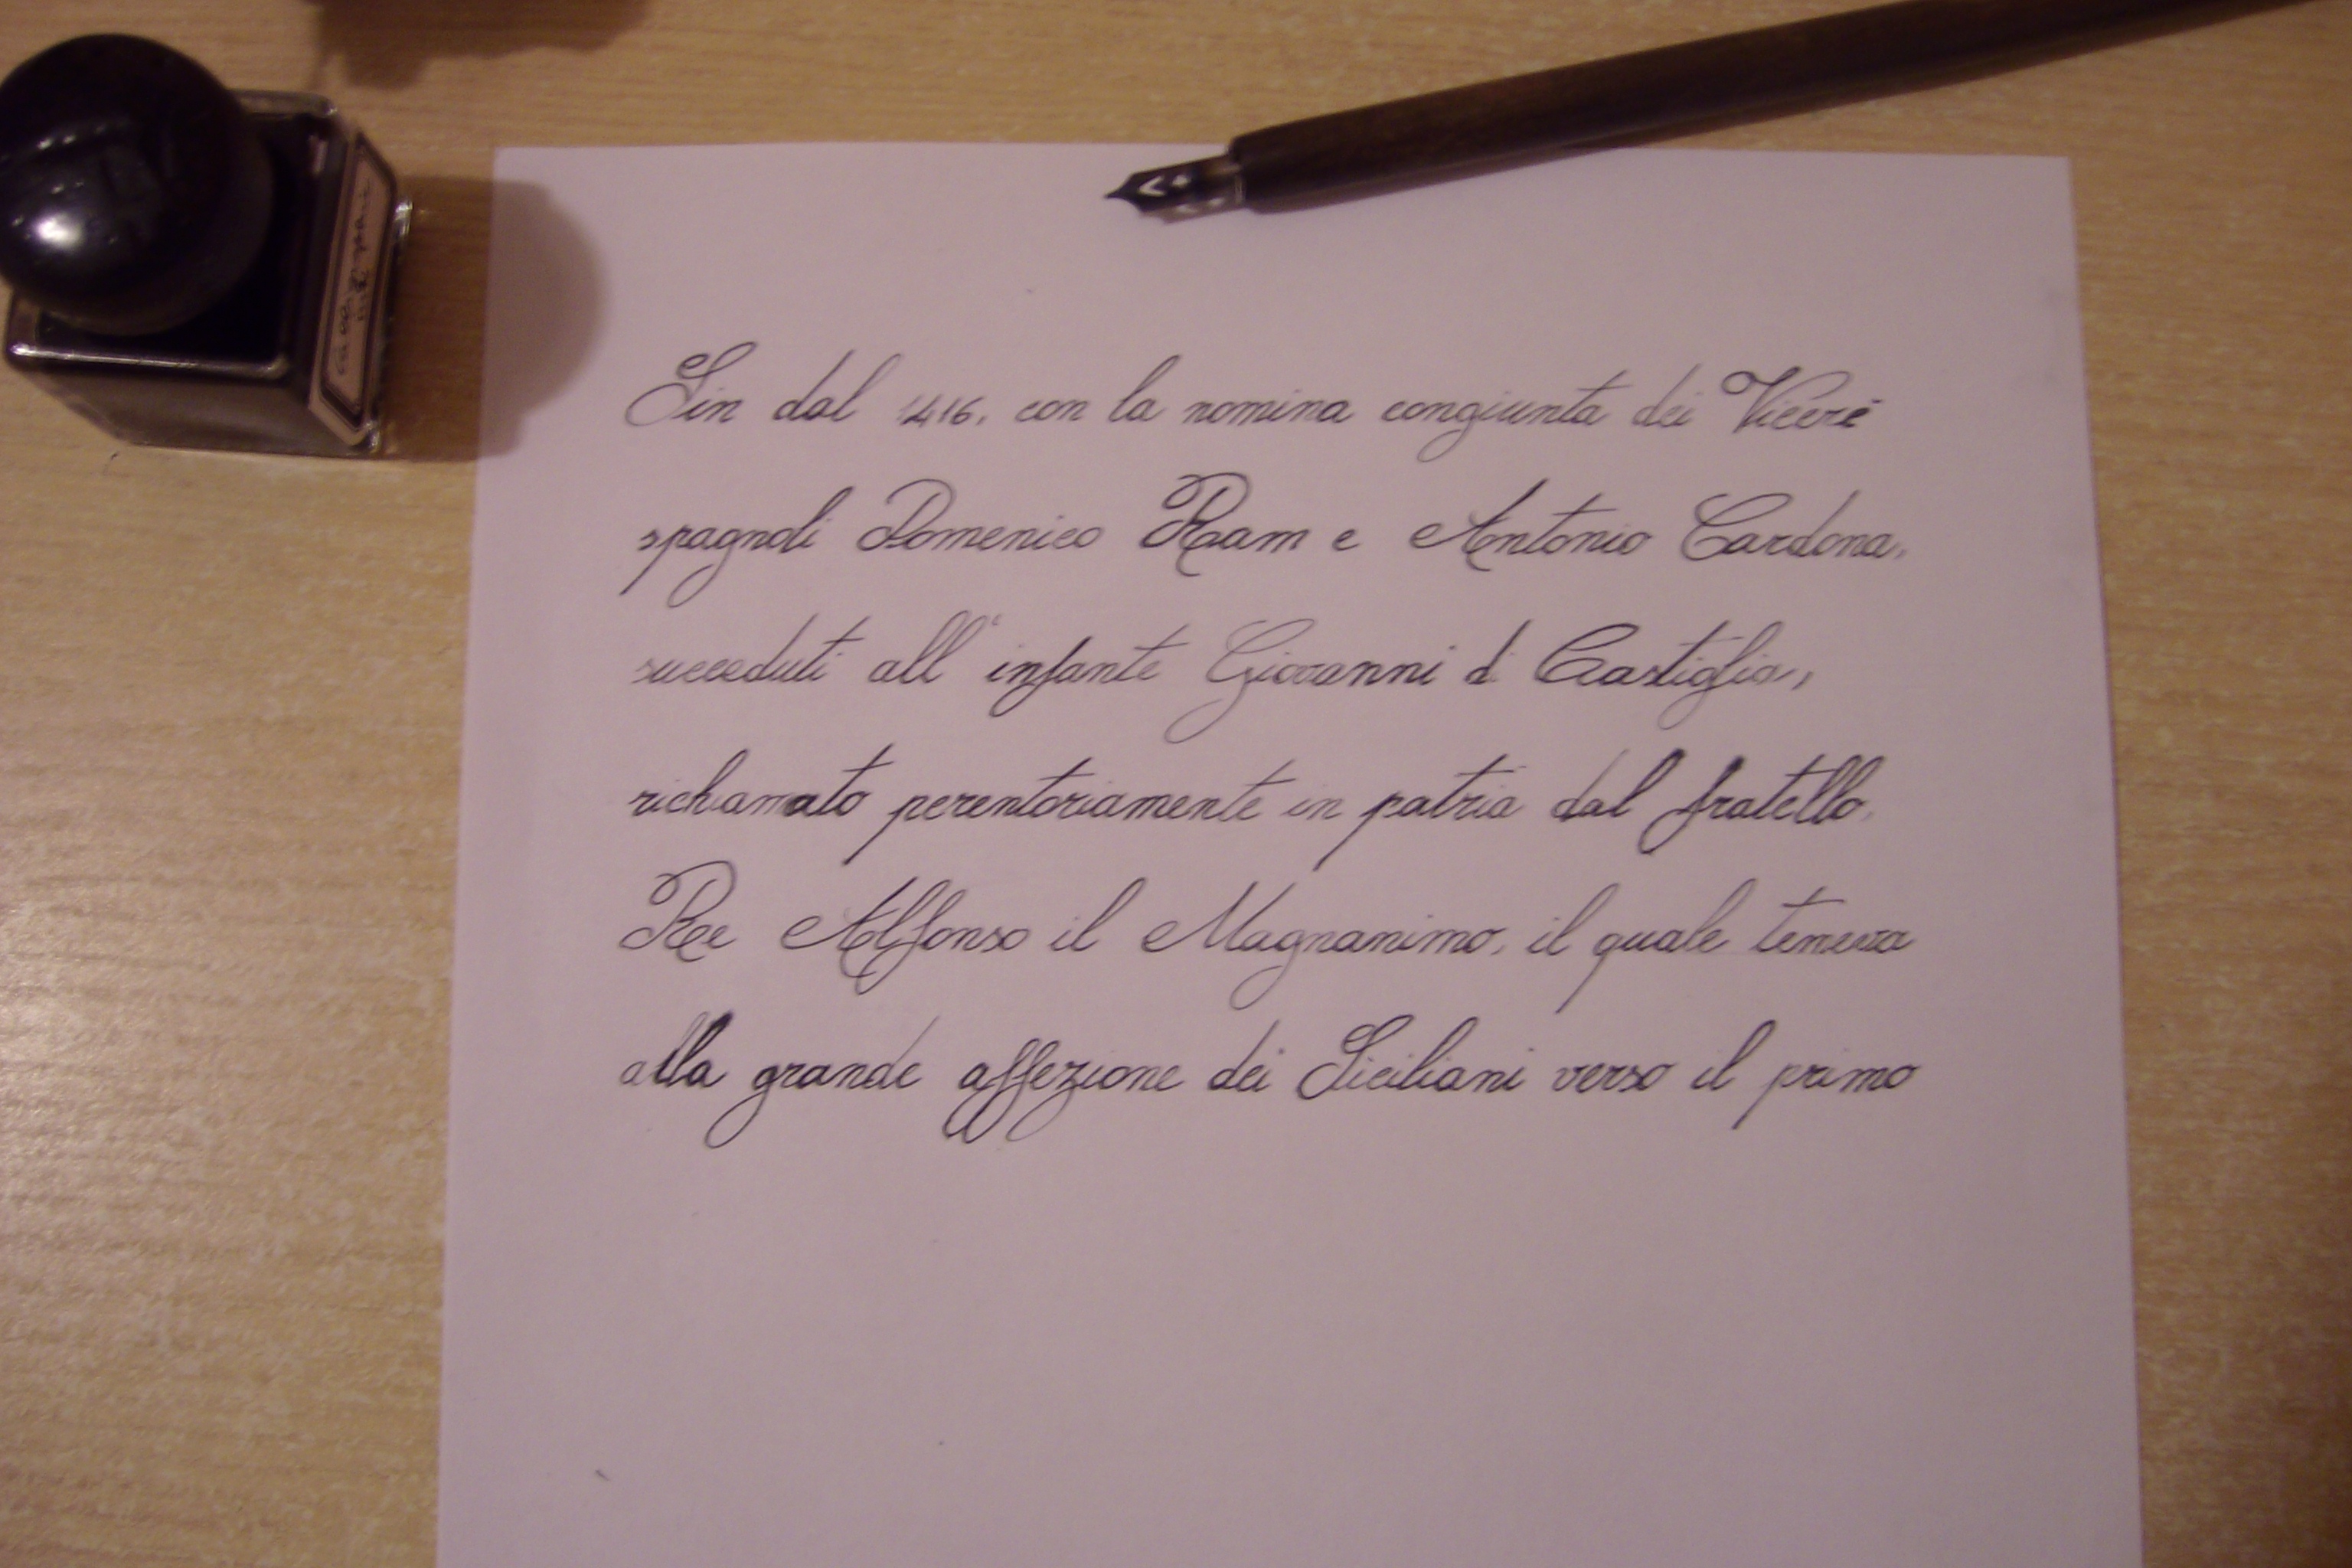 Sin dal 1416, con la nomina congiunta dei Viceré
spagnoli Domenico Ram e Antonio Cardona,
succeduti all'infante Giovanni di Castiglia,
richiamato perentoriamente in patria dal fratello,
Re Alfonso il Magnanimo, il quale temeva
alla grande affezione dei Siciliani verso il primo